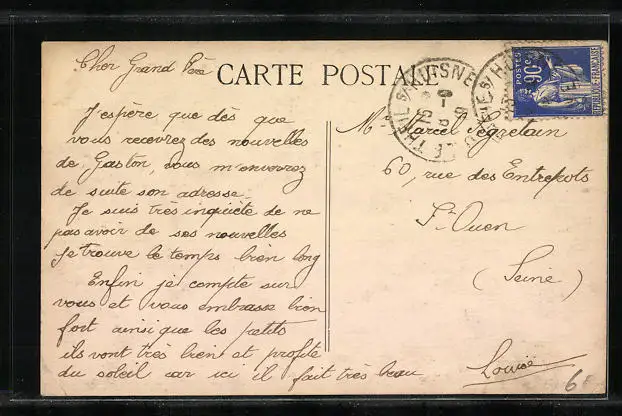 Cher Grand Père
CARTE POSTALE
J'espère que dès que
vous recevrez des nouvelles
de Gaston, vous m'enverrez
de suite son adresse.
Je suis très inquiète de ne
pas avoir de ses nouvelles
je trouve le temps bien long
Enfin je compte sur
vous et vous embrasse bien
fort ainsi que les petits
ils vont très bien et profite
du soleil car ici il fait très beau
Louise
M Marcel Segretain
60, rue des Entrepôts
St Ouen
(Seine)
POSTES
90c
RÉPUBLIQUE FRANÇAISE
LE THEIL S/ HUISNE
6